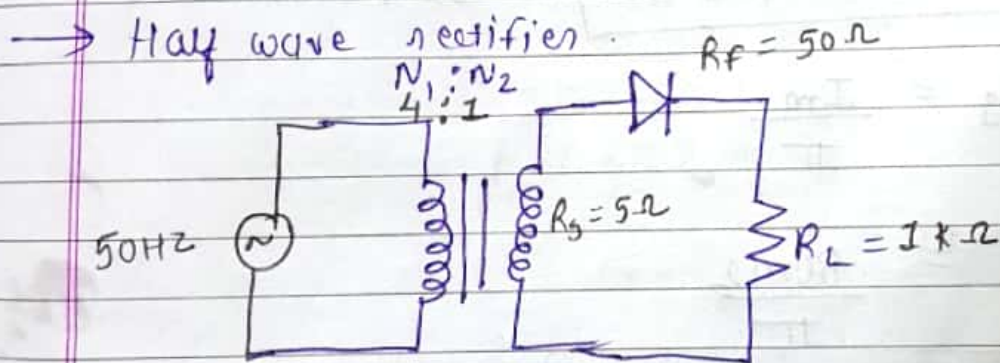 → Half wave rectifier.
Rf = 50 Ω
N1 : N2
4 : 1
50HZ
Rs = 5Ω
RL = 1 K Ω